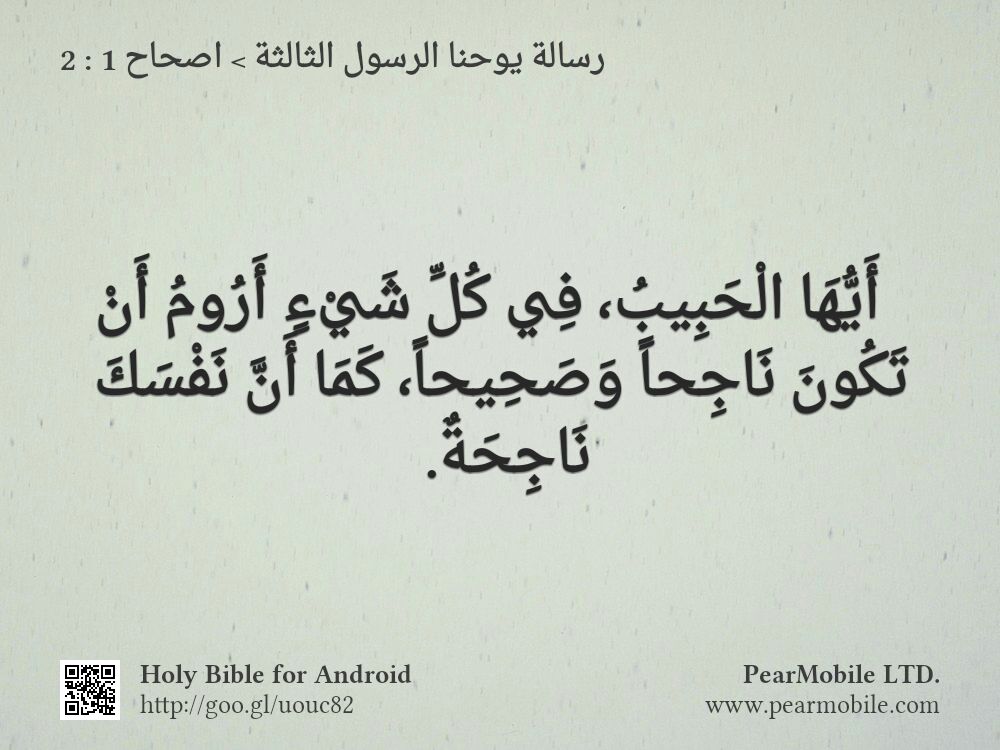 رسالة يوحنا الرسول الثالثة > اصحاح 1 : 2
أَيُّهَا الْحَبِيبُ، فِي كُلِّ شَيْءٍ أَرُومُ أَنْ
تَكُونَ نَاجِحاً وَصَحِيحاً، كَمَا أَنَّ نَفْسَكَ
نَاجِحَةٌ.
Holy Bible for Android
http://goo.gl/uouc82
PearMobile LTD.
www.pearmobile.com